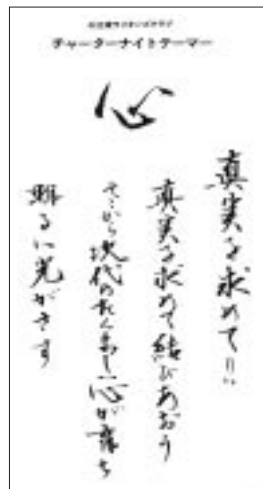 チャーターナイトテーマー
心
真実を求めて!!
真実を求めて結びあおう
そこから次代のたくましい心が育ち
輝るい光がさす